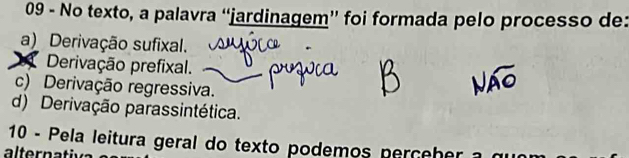 09 - No texto, a palavra “jardinagem” foi formada pelo processo de:
a) Derivação sufixal. sufixa
Derivação prefixal. prefixa B NÃO
c) Derivação regressiva.
d) Derivação parassintética.
10 - Pela leitura geral do texto podemos perceber a quem